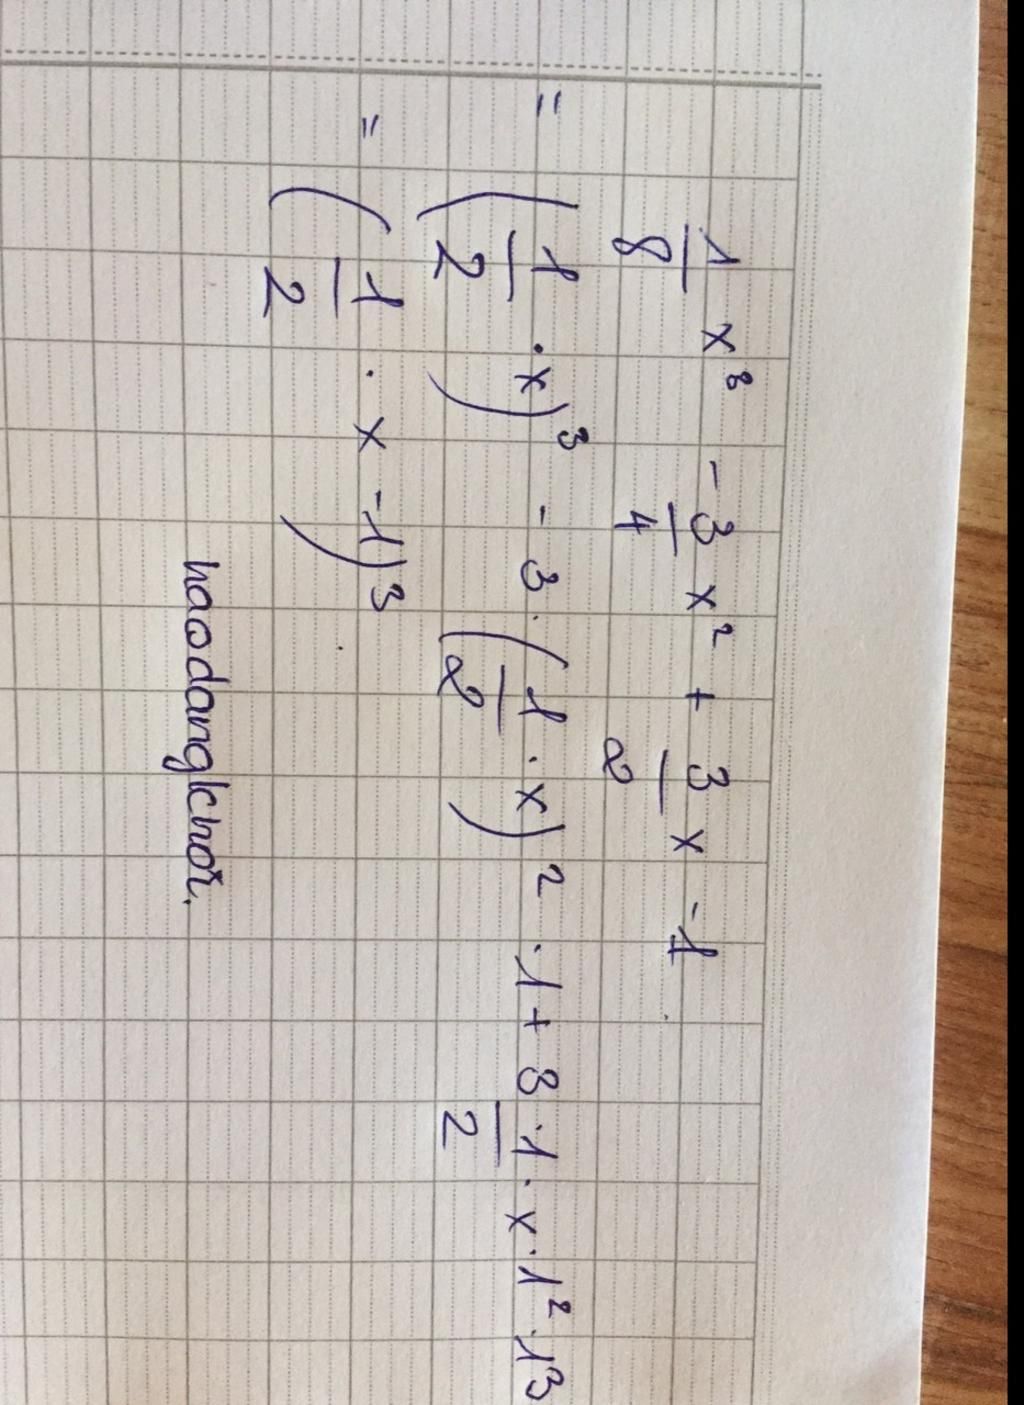 1/8 x³ - 3/4 x² + 3/2 x - 1
= (1/2 · x)³ - 3 · (1/2 · x)² · 1 + 3 · 1/2 · x · 1² · 1³
= (1/2 · x - 1)³
haodanglchoi.